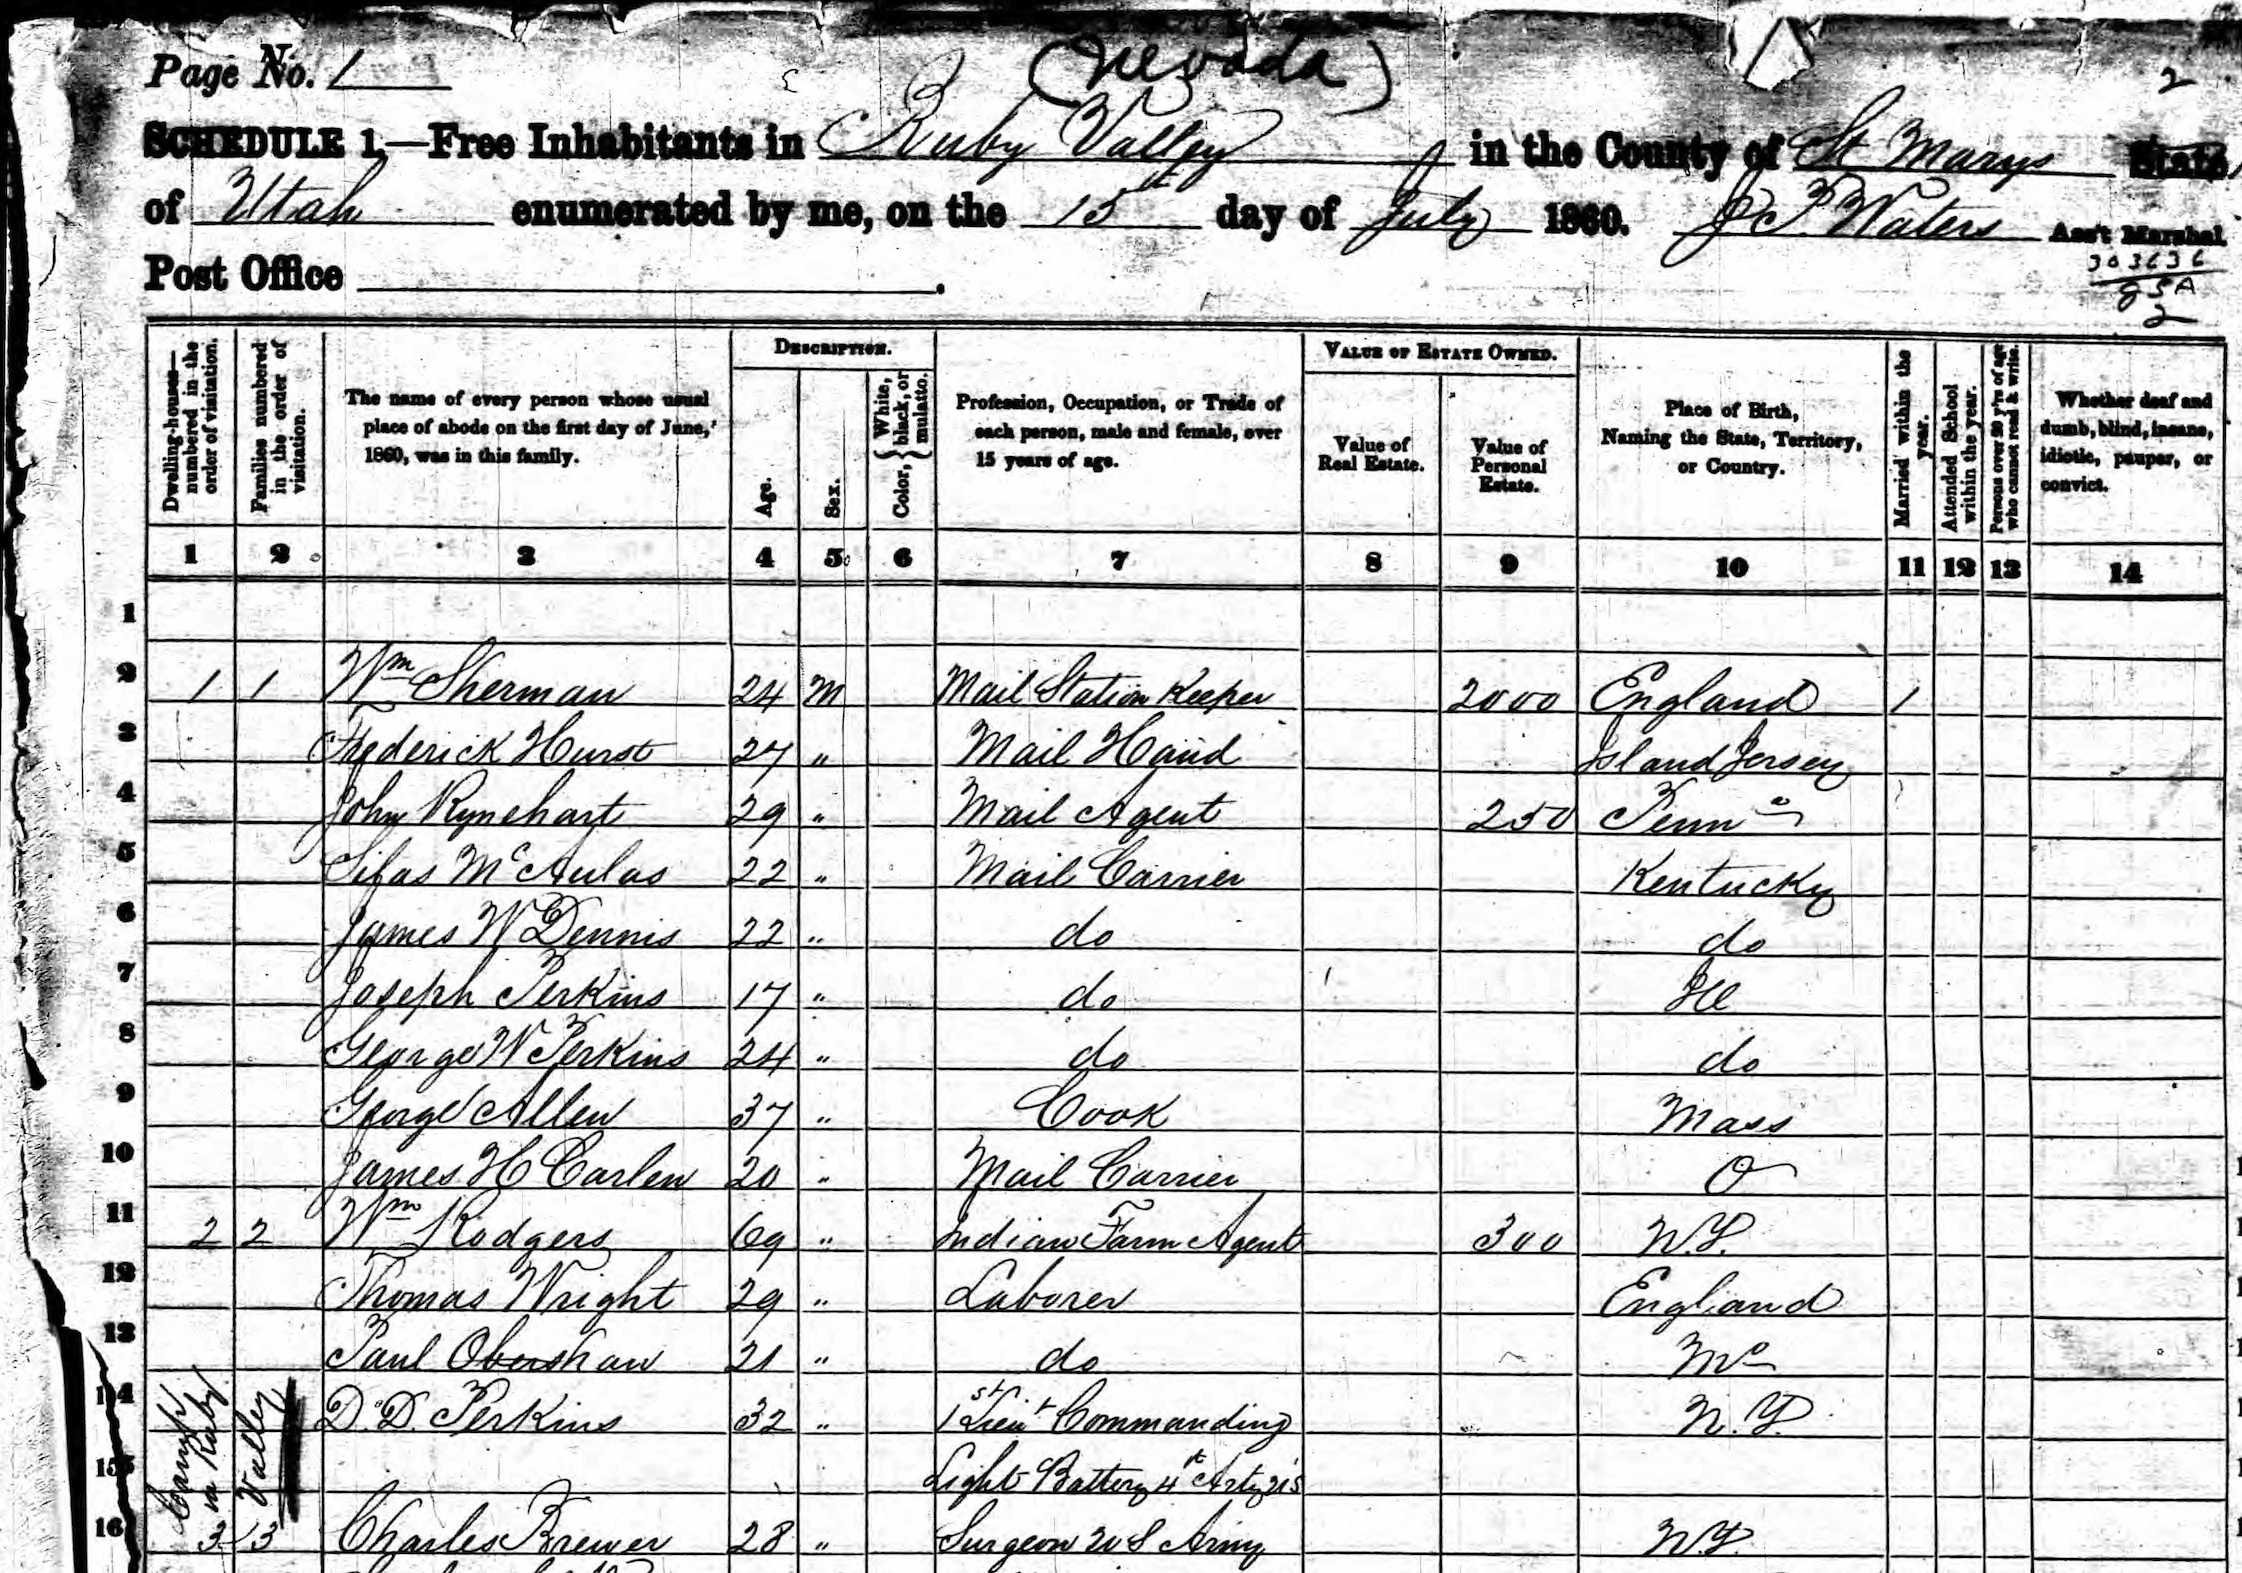 (Nevada)
Page No. 1
2
SCHEDULE 1.—Free Inhabitants in Ruby Valley in the County of St Marys State
of Utah enumerated by me, on the 15th day of July 1860. Waters Ass't Marshal.
Post Office
Description.
Value of Estate Owned.
Dwelling-houses—numbered in the order of visitation.
Families numbered in the order of visitation.
The name of every person whose usual place of abode on the first day of June, 1860, was in this family.
Age.
Sex.
Color, { White, black, or mulatto.
Profession, Occupation, or Trade of each person, male and female, over 15 years of age.
Value of Real Estate.
Value of Personal Estate.
Place of Birth, Naming the State, Territory, or Country.
Married within the year.
Attended School within the year.
Persons over 20 y'rs of age who cannot read & write.
Whether deaf and dumb, blind, insane, idiotic, pauper, or convict.
1 2 3 4 5 6 7 8 9 10 11 12 13 14
1
2 1 1 Wm Sherman 24 M Mail Station Keeper 2000 England 1
3 Frederick Hurst 27 " Mail Hand Island Jersey
4 John Rynehart 29 " Mail Agent 250 Tenn
5 Silas McAulas 22 " Mail Carrier Kentucky
6 James W Dennis 22 " do do
7 Joseph Perkins 17 " do Ill
8 George W Perkins 24 " do do
9 George Allen 37 " Cook Mass
10 James H Carlen 20 " Mail Carrier O
11 2 2 Wm Rodgers 69 " Indian Farm Agent 300 N.Y.
12 Thomas Wright 29 " Laborer England
13 Paul Obershaw 21 " do Mo
14 D. D. Perkins 32 " 1st Lieut Commanding N.Y.
15 Light Battery 4th Arty US
Camp in Ruby Valley
16 3 3 Charles Brewer 28 " Surgeon U S Army N.Y.